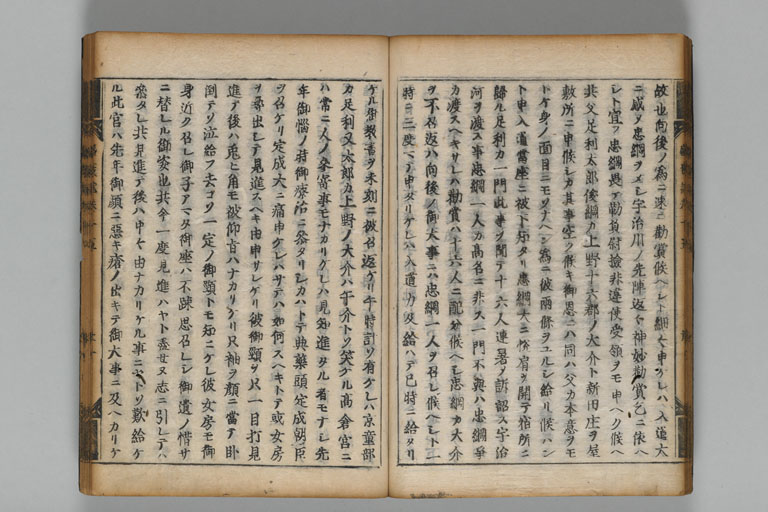 故也向後ノ為ニ速ニ勸賞候ヘシト細々申ケレハ入道大
ニ感ヲ忠綱ヲメシ宇治川ノ先陣返々神妙勸賞乞ニ依ヘ
シト宣ヲ忠綱畏テ勒負尉撿非違使受領ヲモ申ヘク候ヘ
共父足利太郎俊綱カ上野十六郡ノ大介ト新田庄ヲ屋
敷所ニ申候シカ其事空ク候キ御恩ニハ同ハ父カ本意ヲモ
トケ身ノ面目ニモソナヘン為ニ彼兩條ヲユルシ給リ候ハン
ト申入道當座ニ被下知タリ忠綱大ニ悅眉ヲ開テ宿所ニ
歸ル足利カ一門此事ヲ聞テ十六人連署ノ訴詔ス宇治
河ヲ渡ス事忠綱一人カ高名ニ非ス一門不與ハ忠綱爭
カ渡スヘキサレハ勸賞ハ十六人ニ配分候ヘシ忠綱カ大介
ヲ不召返ハ向後ノ御大事ニハ忠綱一人ヲ召レ候ヘシト一
時ニ三度マテ申タリケレハ入道力及給ハテ巳時ニ給タリ
ケル御教書ヲ未刻ニ被召返ケリ午時計ソ有ケレハ京童部
カ足利又太郎カ上野ノ大介ハ午介トソ笑ケル高倉宮ニ
ハ常ニ人ノ參寄事モナカリケレハ見知進タル者モナシ先
年御惱ノ時御療治ニ參タリシカハトテ典藥頭定成朝臣
ヲ召ケリ定成大ニ痛申ケレハサテハ如何スヘキトテ或女房
ヲ尋出シテ見進スヘキ由申サレケリ彼御頸ヲ只一目打見
進テ後ハ兎モ角モ被仰旨ハナカリケリ只袖ヲ顏ニ當テ臥
倒テソ泣給フ去コソ一定ノ御頸トモ知ニケレ彼女房モ御
身近ク召レ御子アマタ御座ハ不疎思召レシ御遺ノ惜サ
ニ替レル御姿也共今一度見進ハヤト盡セヌ志ニ引レテハ
參タレ共見進テ後ハ中々由ナカリケル事ニコソト歎給ケ
ル此宮ハ先年御頸ニ惡キ瘡ノ出キテ御大事ニ及ヘカリケ